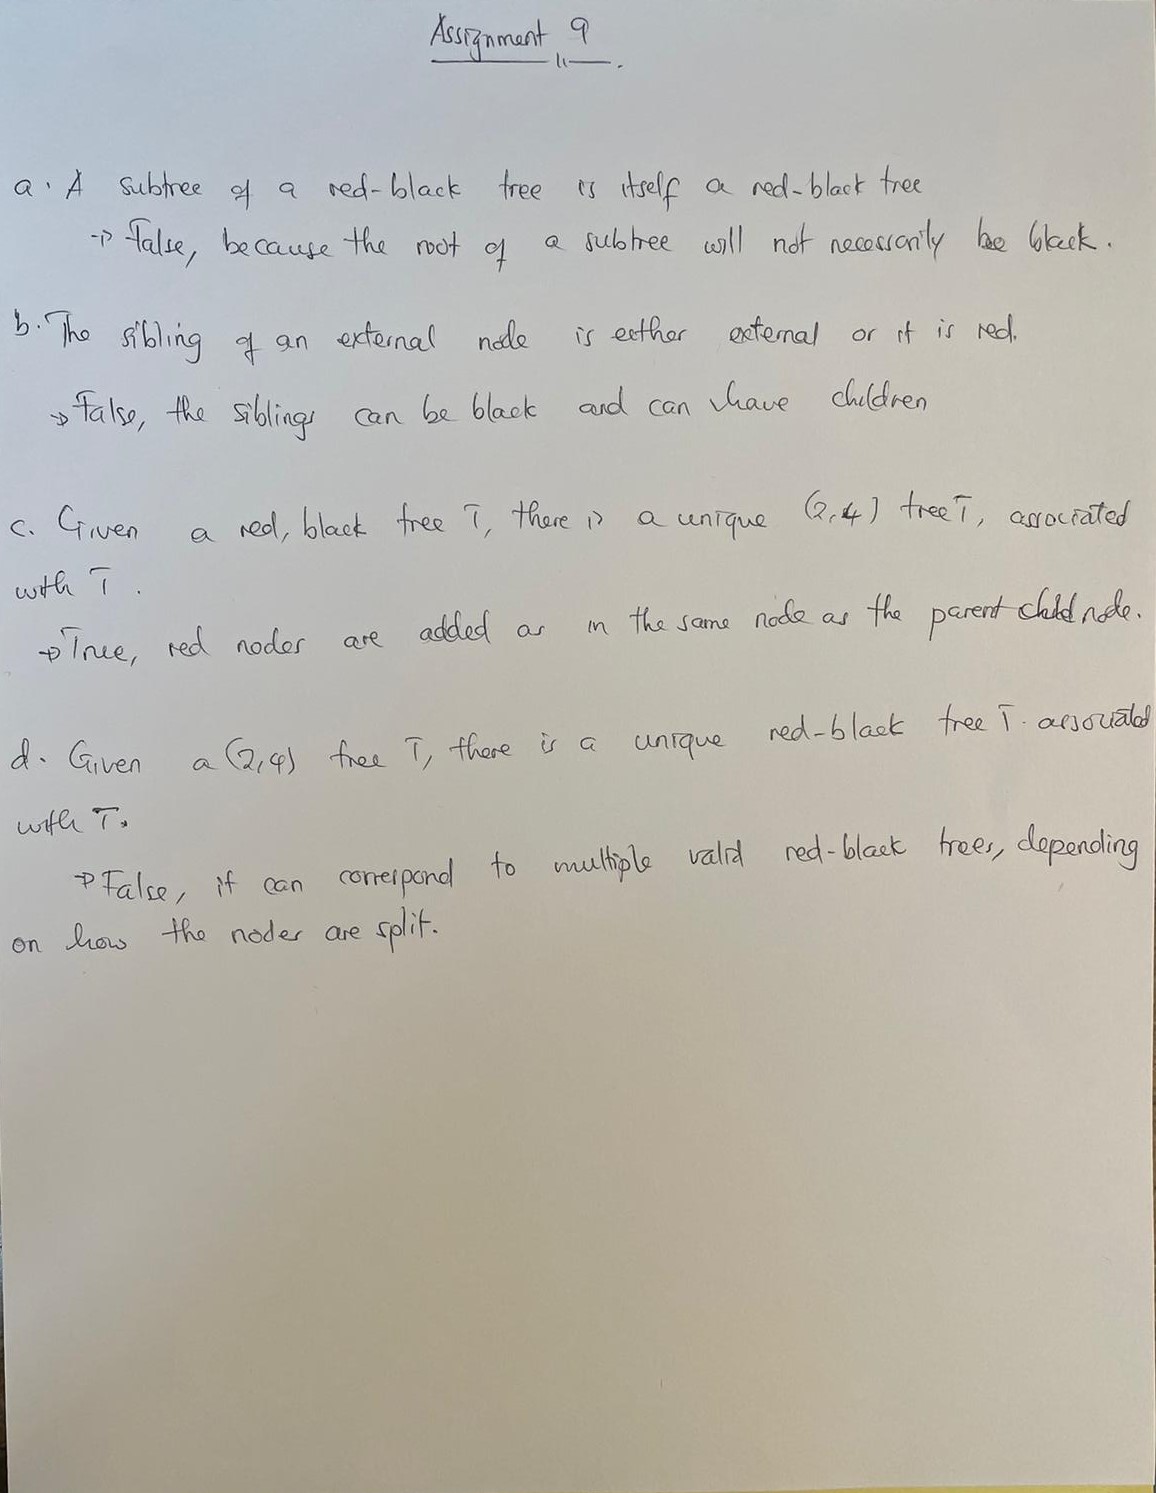 Assignment 9
a. A subtree of a red-black tree is itself a red-black tree
→ False, because the root of a subtree will not necessarily be black.
b. The sibling of an external node is either external or it is red.
→ False, the siblings can be black and can have children
c. Given a red, black tree T, there is a unique (2,4) tree T, associated
with T.
→ True, red nodes are added as in the same node as the parent child node.
d. Given a (2,4) tree T, there is a unique red-black tree T. associated
with T.
→ False, it can correspond to multiple valid red-black trees, depending
on how the nodes are split.